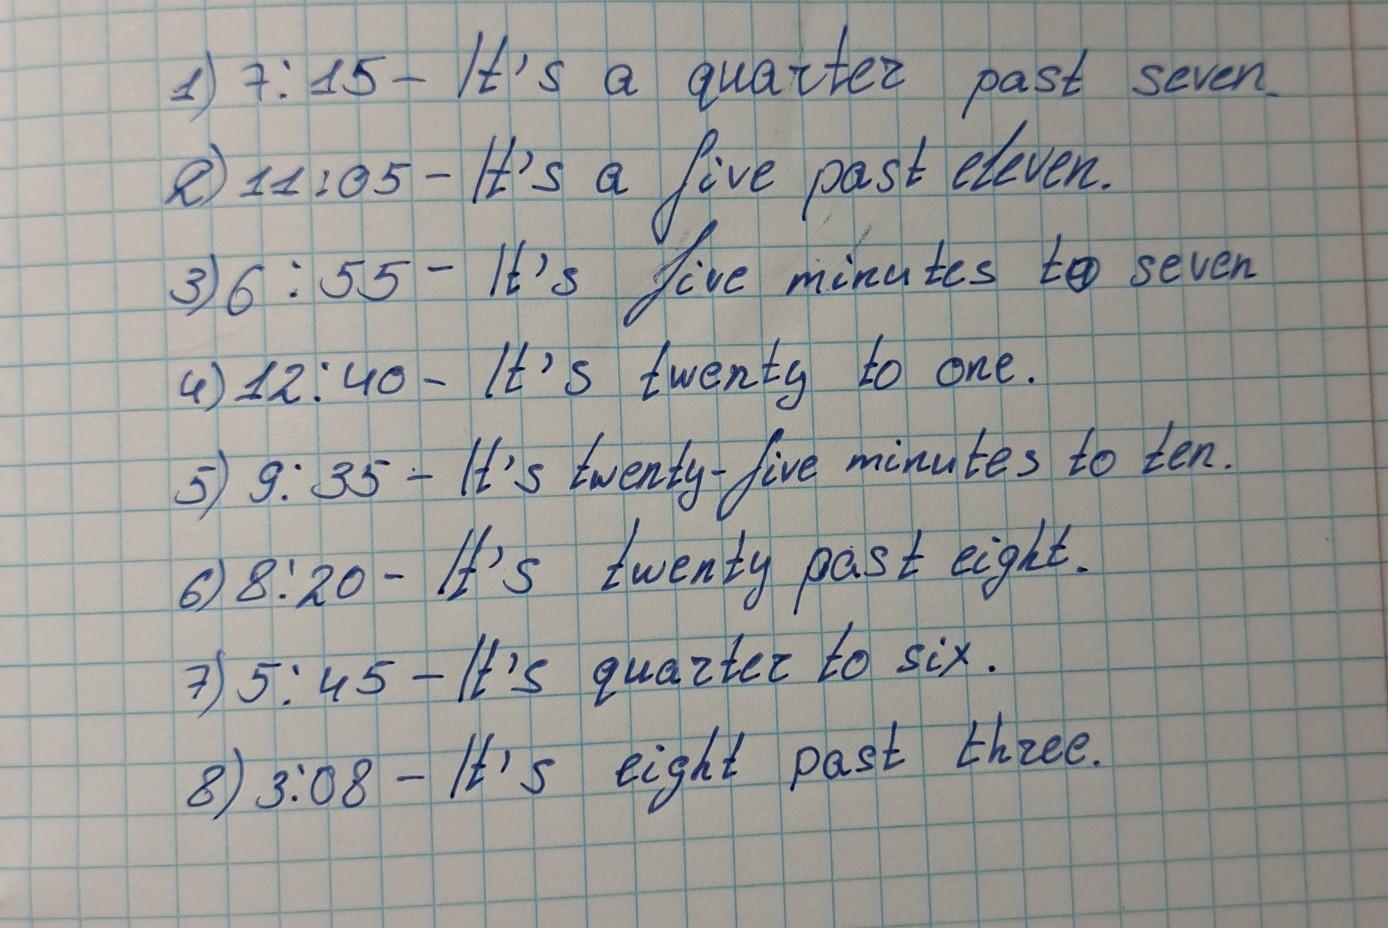 1) 7:15 – It's a quarter past seven.
2) 11:05 – It's a five past eleven.
3) 6:55 – It's five minutes to seven
4) 12:40 – It's twenty to one.
5) 9:35 – It's twenty-five minutes to ten.
6) 8:20 – It's twenty past eight.
7) 5:45 – It's quarter to six.
8) 3:08 – It's eight past three.